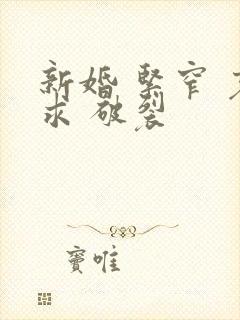 新婚 緊窄
求 破裂
竇唯